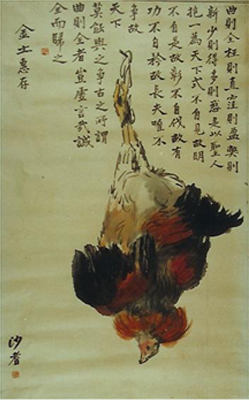 曲則全枉則直窪則盈獘則
新少則得多則惑是以聖人
抱一為天下式不自見故明
不自是故彰不自伐故有
功不自矜故長夫唯不
爭故
天下
莫能與之爭古之所謂
曲則全者豈虛言哉誠
全而歸之
金土惠存
沙耆